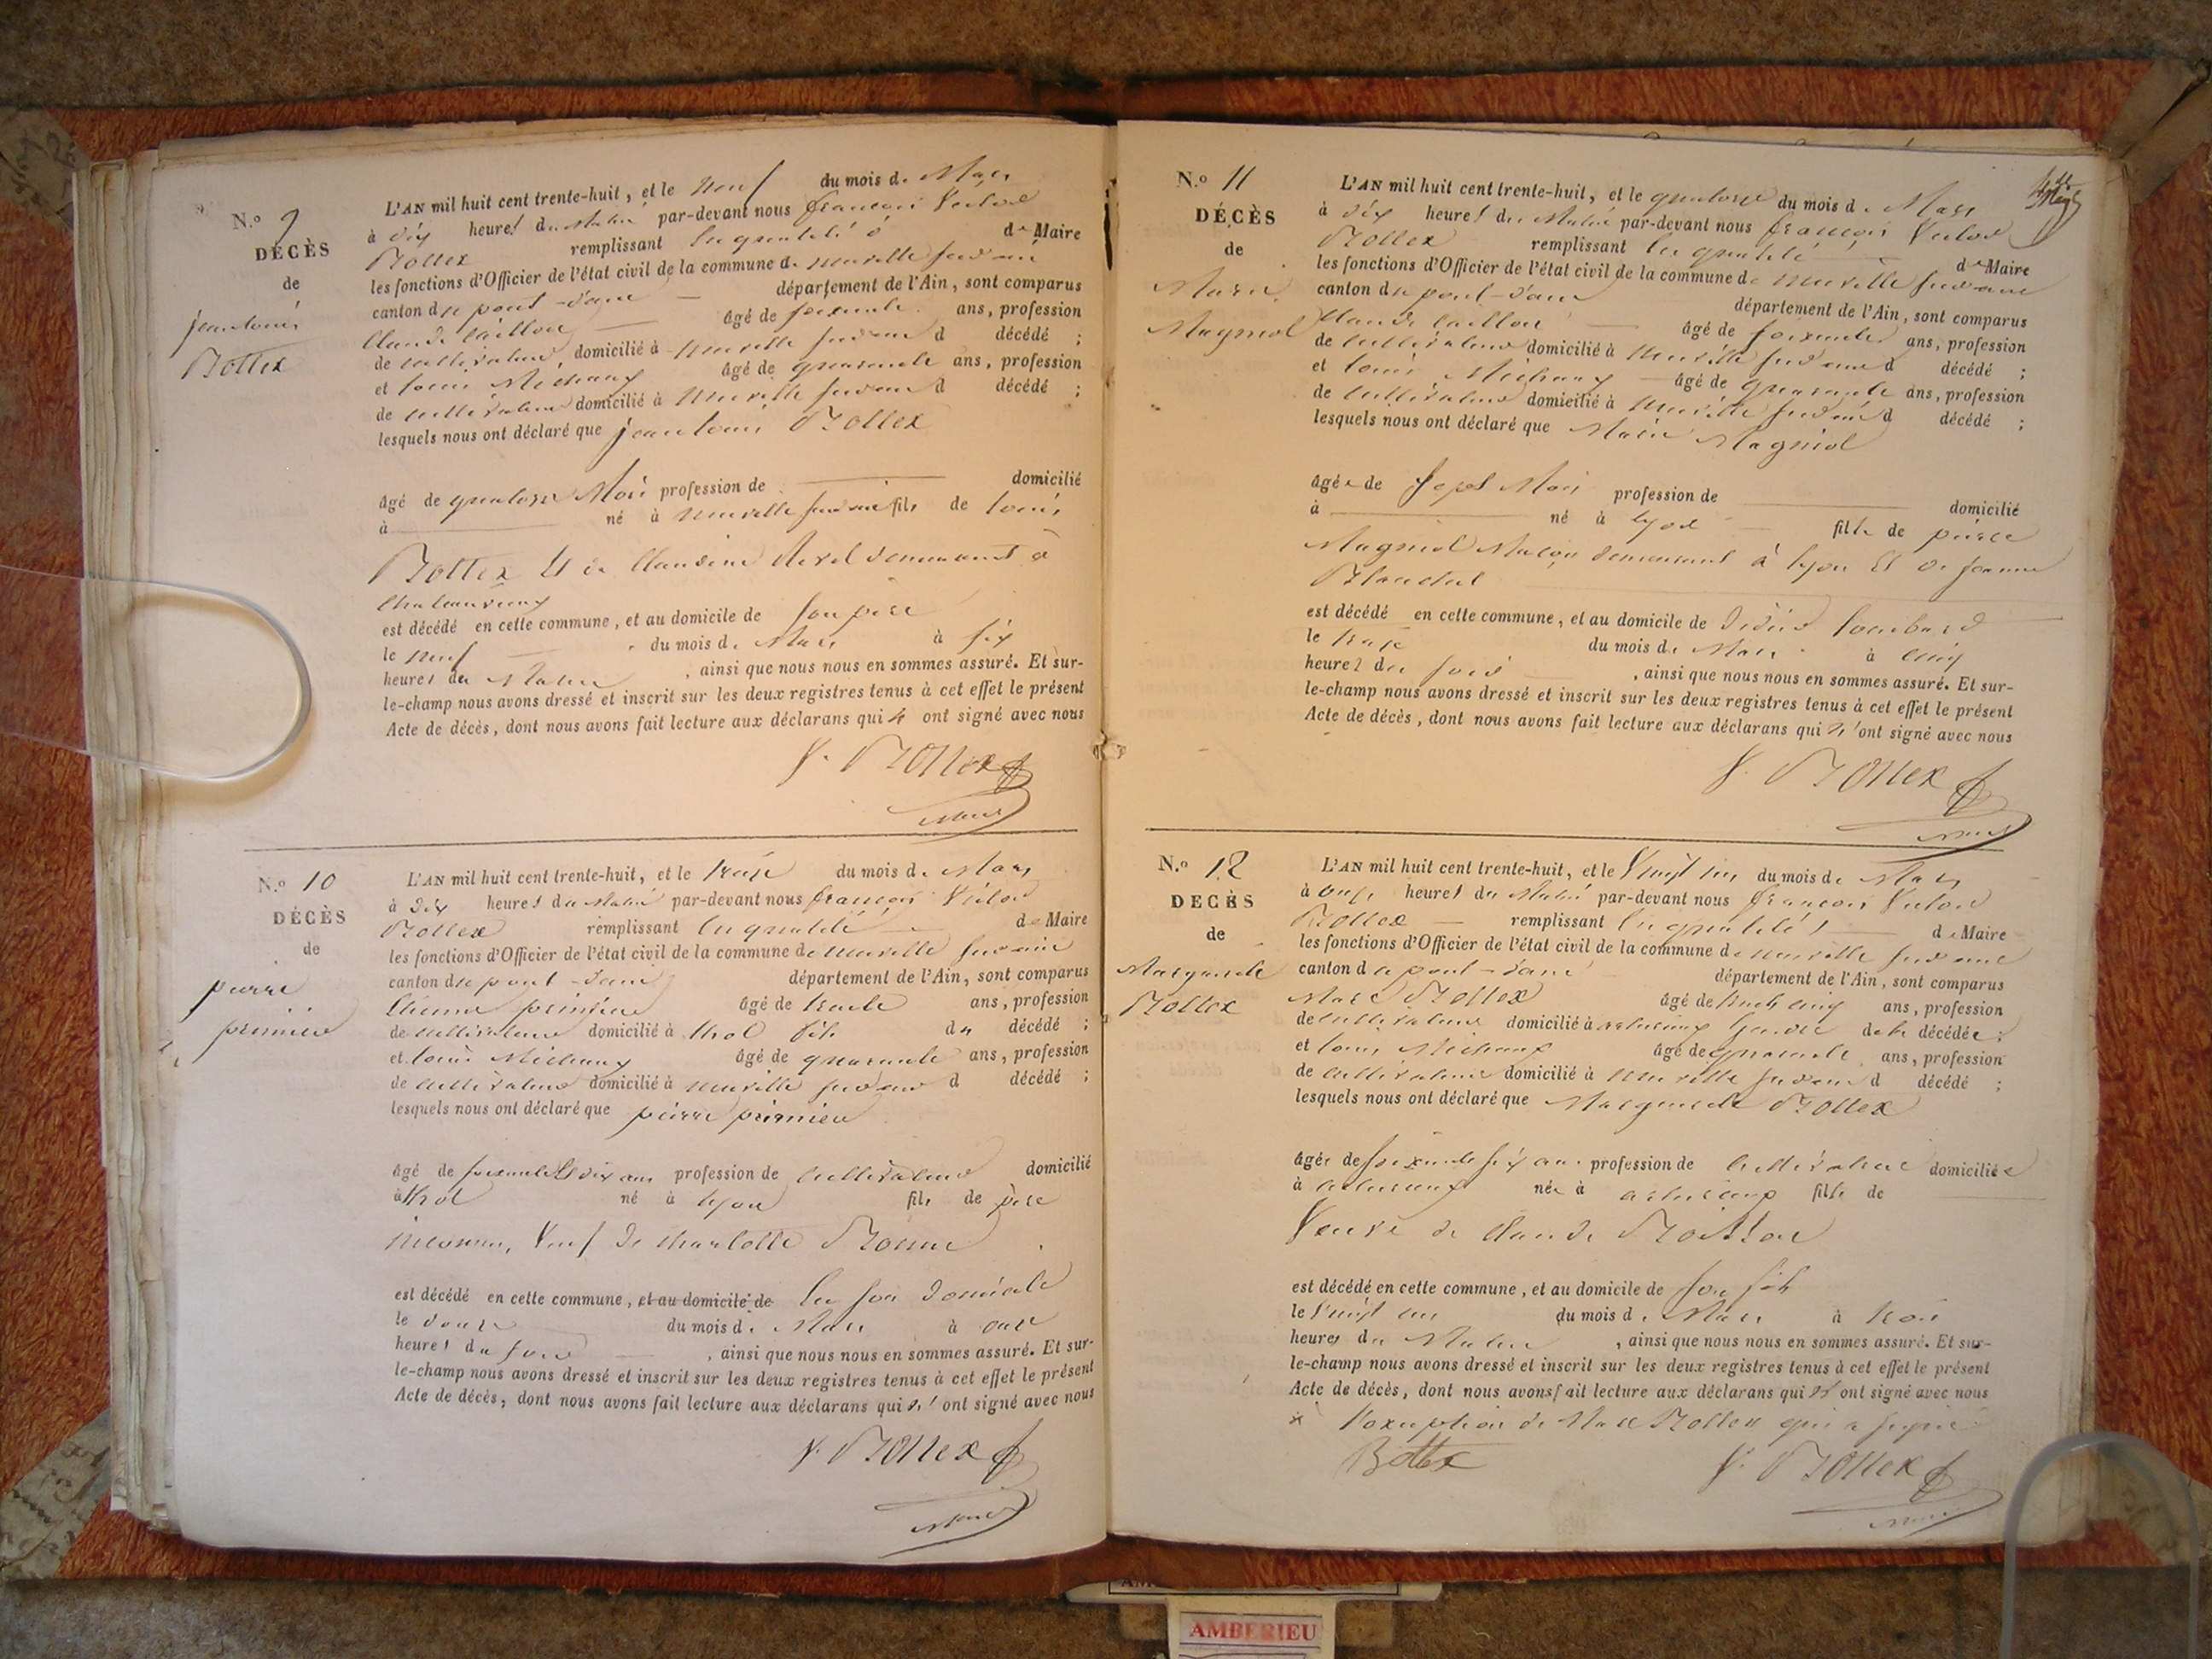 N.º 9
DÉCÈS
de
jean louis
Bottex
L'AN mil huit cent trente-huit, et le neuf du mois de Mars
à dix heures du Matin par-devant nous françois Victor
Bottex remplissant en qualité de Maire
les fonctions d'Officier de l'état civil de la commune de neuville sur ain
canton de pont-d'ain département de l'Ain, sont comparus
Claude caillon âgé de soixante ans, profession
de cultivateur domicilié à neuville sur ain d décédé ;
et louis Michaux âgé de quarante ans, profession
de cultivateur domicilié à neuville sur ain d décédé ;
lesquels nous ont déclaré que jean louis Bottex
âgé de quatorze Mois profession de domicilié
à né à neuville sur ain fils de louis
Bottex et de Claudine demeurant à
chateauvieux
est décédé en cette commune, et au domicile de son père
le neuf du mois de Mars à six
heures du Matin, ainsi que nous nous en sommes assuré. Et sur-
le-champ nous avons dressé et inscrit sur les deux registres tenus à cet effet le présent
Acte de décès, dont nous avons fait lecture aux déclarans qui n' ont signé avec nous
V. Bottex
Maire
N.º 10
DÉCÈS
de
pierre
L'AN mil huit cent trente-huit, et le treize du mois de Mars
à dix heures du Matin par-devant nous françois Victor
Bottex remplissant en qualité de Maire
les fonctions d'Officier de l'état civil de la commune de neuville sur ain
canton de pont-d'ain département de l'Ain, sont comparus
Etienne âgé de trente ans, profession
de cultivateur domicilié à thol fils du décédé ;
et louis Michaux âgé de quarante ans, profession
de cultivateur domicilié à neuville sur ain d décédé ;
lesquels nous ont déclaré que pierre
âgé de soixante et dix ans profession de cultivateur domicilié
à thol né à lyon fils de père
inconnu, Veuf de charlotte
est décédé en cette commune, et au domicile de en son domicile
le douze du mois de Mars à onze
heures du soir, ainsi que nous nous en sommes assuré. Et sur-
le-champ nous avons dressé et inscrit sur les deux registres tenus à cet effet le présent
Acte de décès, dont nous avons fait lecture aux déclarans qui n' ont signé avec nous
V. Bottex
Maire
N.º 11
DÉCÈS
de
Marie
Magniol
L'AN mil huit cent trente-huit, et le quatorze du mois de Mars
à dix heures du Matin par-devant nous françois Victor
Bottex remplissant en qualité de Maire
les fonctions d'Officier de l'état civil de la commune de neuville sur ain
canton de pont-d'ain département de l'Ain, sont comparus
Claude caillon âgé de soixante ans, profession
de cultivateur domicilié à neuville sur ain d décédé ;
et louis Michaux âgé de quarante ans, profession
de cultivateur domicilié à neuville sur ain d décédé ;
lesquels nous ont déclaré que Marie Magniol
âgée de sept Mois profession de domicilié
à né à lyon fille de pierre
Magniol Maçon demeurant à lyon et de jeanne
est décédé en cette commune, et au domicile de lombard
le treize du mois de Mars à cinq
heures du soir, ainsi que nous nous en sommes assuré. Et sur-
le-champ nous avons dressé et inscrit sur les deux registres tenus à cet effet le présent
Acte de décès, dont nous avons fait lecture aux déclarans qui n' ont signé avec nous
V. Bottex
Maire
N.º 12
DECÈS
de
Marguerite
Bottex
L'AN mil huit cent trente-huit, et le Vingt un du mois de Mars
à onze heures du Matin par-devant nous françois Victor
Bottex remplissant en qualité de Maire
les fonctions d'Officier de l'état civil de la commune de neuville sur ain
canton de pont-d'ain département de l'Ain, sont comparus
Marc Bottex âgé de trente cinq ans, profession
de cultivateur domicilié à gendre de la décédée ;
et louis Michaux âgé de quarante ans, profession
de cultivateur domicilié à neuville sur ain d décédé ;
lesquels nous ont déclaré que Marguerite Bottex
âgée de soixante six ans profession de cultivateur domiciliée
à née à fille de
Veuve de Claude
est décédé en cette commune, et au domicile de son fils
le Vingt un du mois de Mars à trois
heures du Matin, ainsi que nous nous en sommes assuré. Et sur-
le-champ nous avons dressé et inscrit sur les deux registres tenus à cet effet le présent
Acte de décès, dont nous avons fait lecture aux déclarans qui n' ont signé avec nous
à l'exception de Marc Bottex qui a signé
Bottex V. Bottex
Maire
AMBERIEU